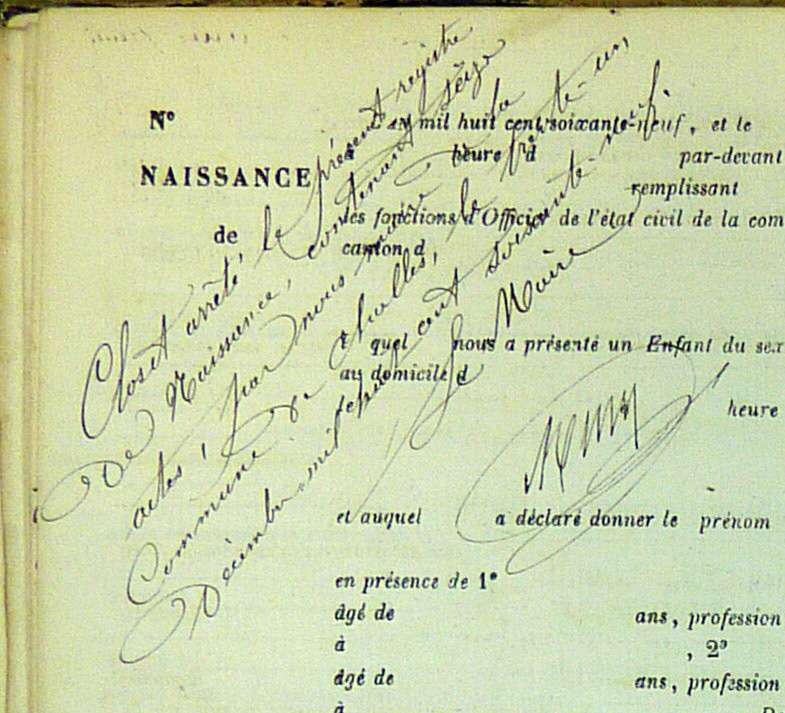 N°
NAISSANCE
de
L'an mil huit cent soixante-neuf, et le
heure d par-devant
remplissant
les fonctions d'Officier de l'état civil de la com
canton d
quel nous a présenté un Enfant du sex
au domicile d
heure
et auquel a déclaré donner le prénom
en présence de 1°
âgé de ans, profession
à , 2°
âgé de ans, profession
à
Clos et arrêté le présent registre
De Naissance, contenant seize
actes, par nous maire de la
Commune de Challes, le trente-un,
Décembre mil huit cent soixante-neuf.
Le Maire